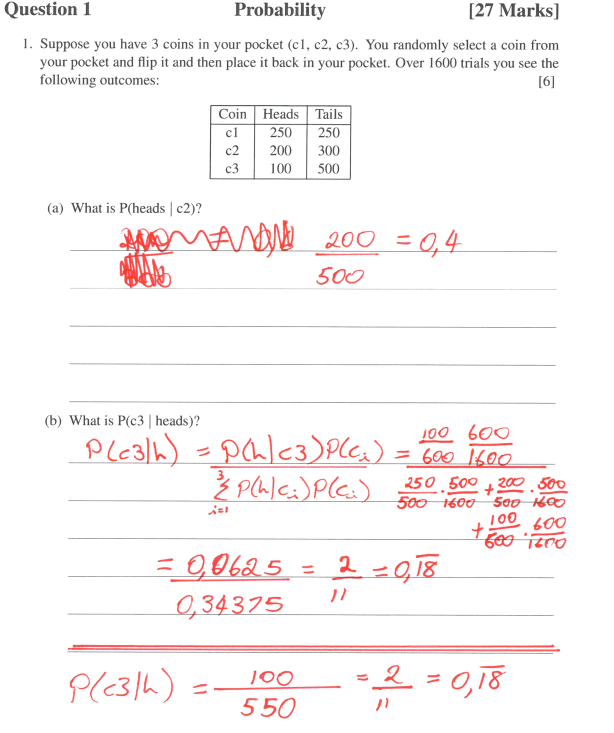 Question 1 Probability [27 Marks]
1. Suppose you have 3 coins in your pocket (c1, c2, c3). You randomly select a coin from
your pocket and flip it and then place it back in your pocket. Over 1600 trials you see the
following outcomes: [6]
Coin Heads Tails
c1 250 250
c2 200 300
c3 100 500
(a) What is P(heads | c2)?
200/500 = 0,4
(b) What is P(c3 | heads)?
P(c3|h) = P(h|c3)P(ci) / Σ i=1 3 P(h|ci)P(ci) = 100/600 600/1600 / 250/500 · 500/1600 + 200/500 · 500/1600
+ 100/600 · 600/1600
= 0,0625/0,34375 = 2/11 = 0,1̅8̅
P(c3|h) = 100/550 = 2/11 = 0,1̅8̅